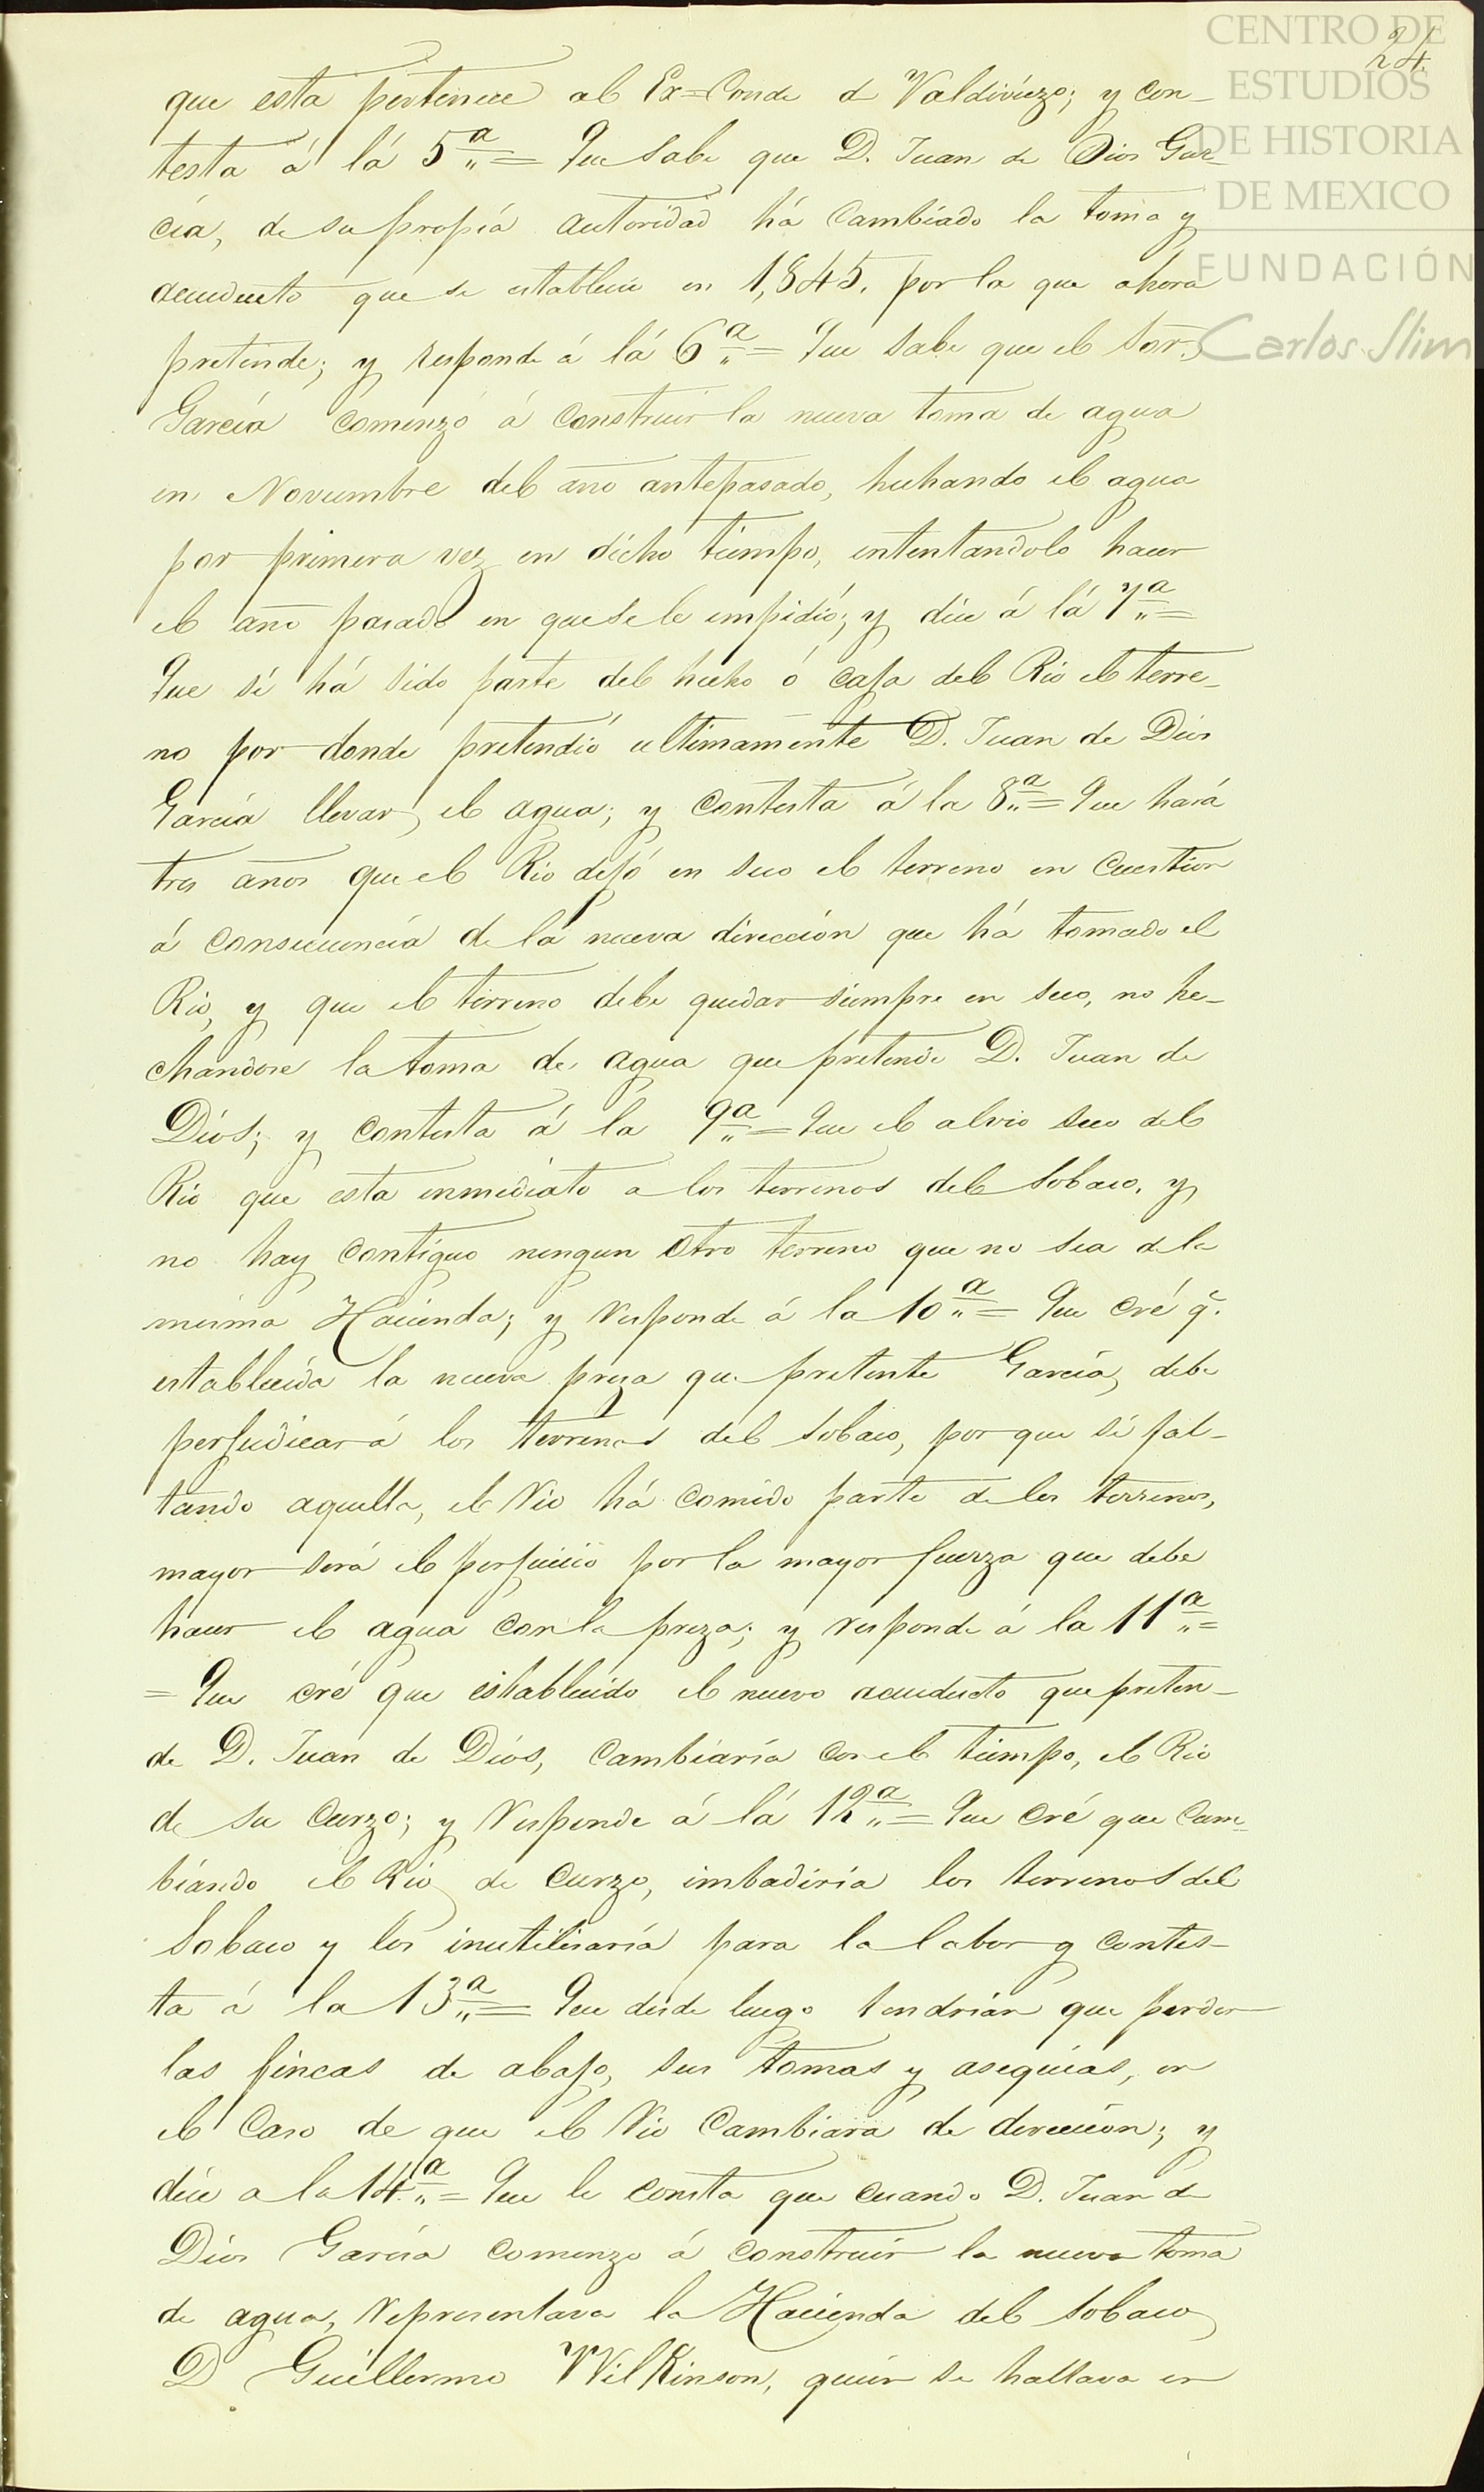 CENTRO DE
ESTUDIOS
DE HISTORIA
DE MEXICO
FUNDACIÓN
Carlos Slim
24.
que esta pertenece al Ex=Conde de Valdiviezo; y con-
testa á lá 5ª = Que sabe que D. Juan de Dios Gar-
cía, de su propia autoridad há cambiado la toma y
acueducto que se estableció en 1,845. por la que ahora
pretende; y responde á lá 6ª = Que sabe que el Sor.
García comenzó á construir la nueva toma de agua
en Noviembre del año antepasado, hechando el agua
por primera vez en dicho tiempo, intentandolo hacer
el año pasado en que se le impidió; y dice á lá 7ª =
Que sí há sido parte del hecho ó caja del Rio el terre-
no por donde pretendió ultimamente D. Juan de Dios
García llevar el agua; y contesta á la 8ª = Que hará
tres años que el Rio dejó en seco el terreno en cuestion
á consecuencia de la nueva dirección que há tomado el
Rio, y que el terreno debe quedar siempre en seco, no he-
chandose la toma de agua que pretende D. Juan de
Dios; y contesta á la 9ª = Que el alvio seco del
Rio que esta inmediato a los terrenos del Sobaco, y
no hay contiguo ningun otro terreno que no sea de la
misma Hacienda; y responde á la 10ª = Que cré q.
establecida la nueva preza que pretente García, debe
perjudicar á los terrenos del Sobaco, por que si fal-
tando aquella, el Rio há comido parte de los terrenos,
mayor será el perjuicio por la mayor fuerza que debe
hacer el agua con la preza; y responde á la 11ª =
= Que cré que establecido el nuevo acueducto que preten-
de D. Juan de Dios, cambiaría con el tiempo, el Rio
de su curzo; y responde á lá 12ª = Que cré que cam-
biando el Rio de curzo, imbadiría los terrenos del
Sobaco y los inutilisaría para la labor y contes-
ta á la 13ª = Que desde luego tendrían que perder
las fincas de abajo, sus tomas y asequias, en
el caso de que el Rio cambiara de direccion; y
dice a la 14ª = Que le consta que cuando D. Juan de
Dios García comenzo á construir la nueva toma
de agua, representava la Hacienda del Sobaco
D Guillermo Wilkinson, quien se hallava en